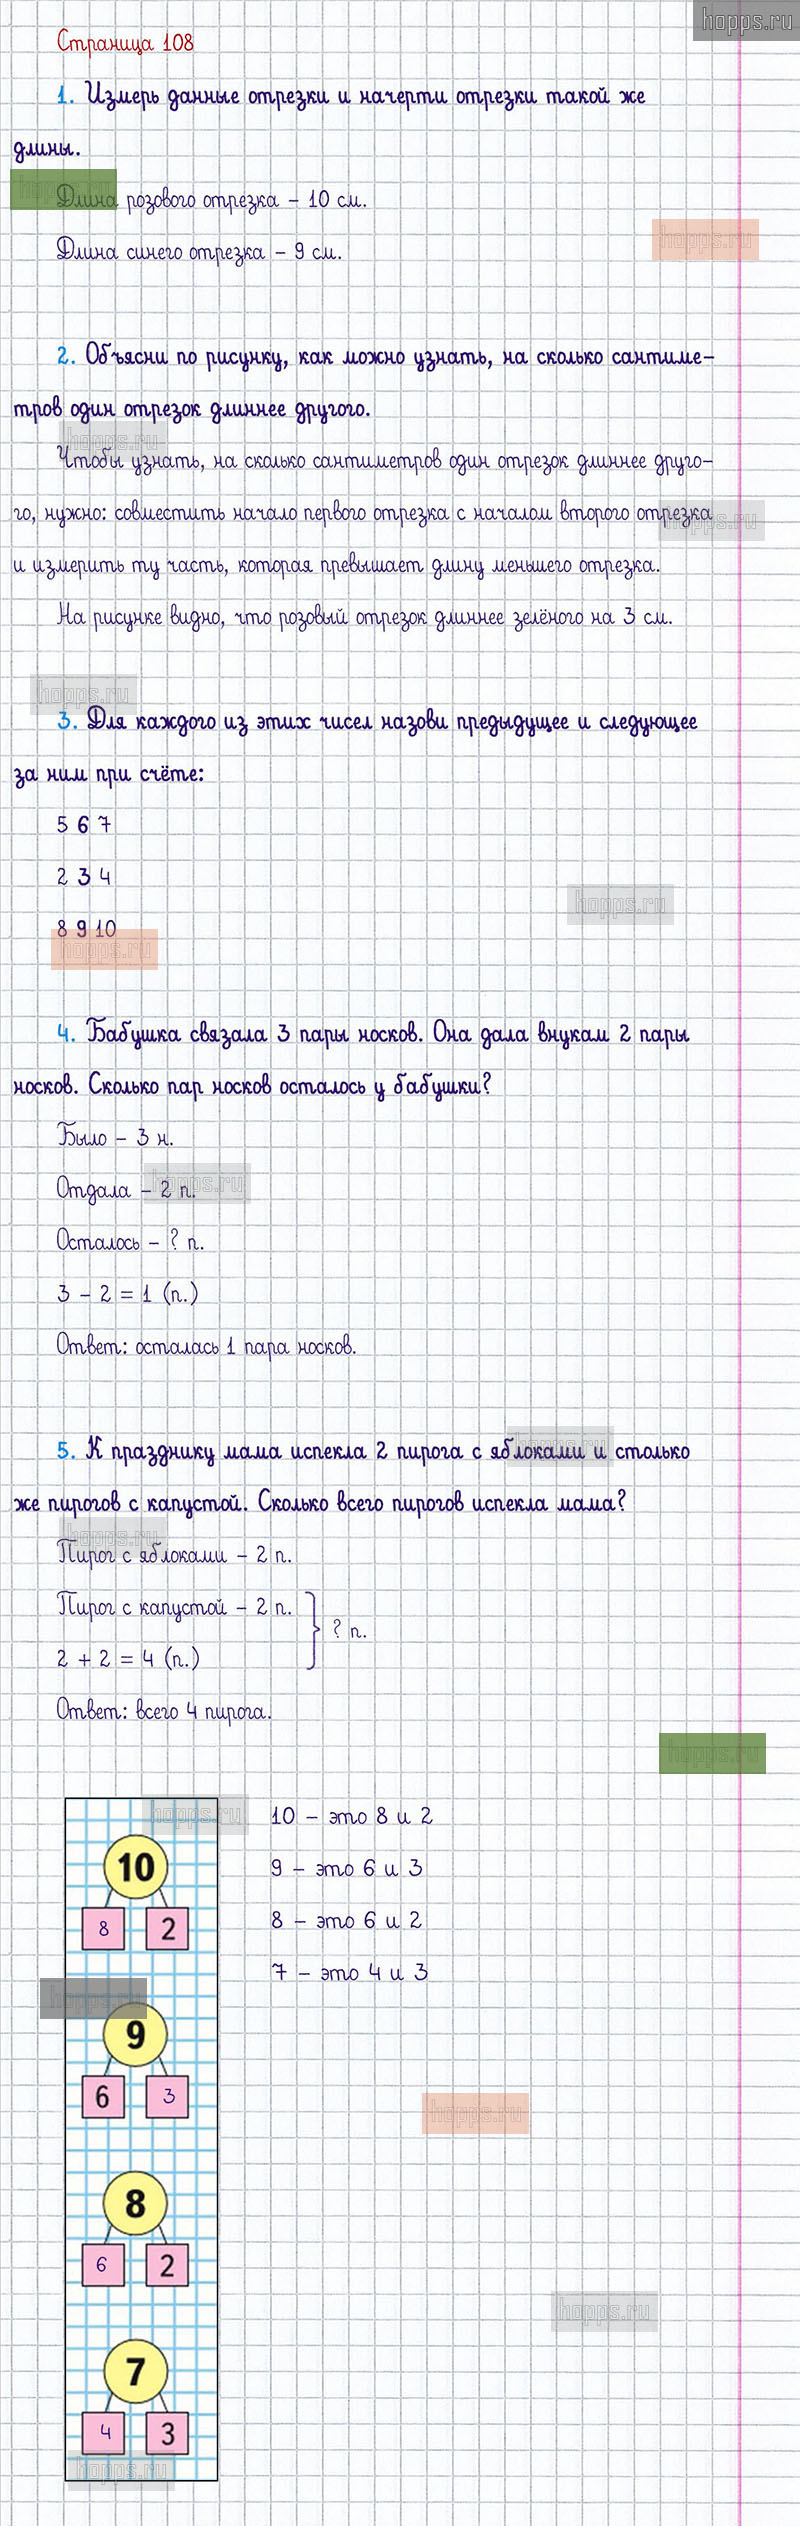 hopps.ru
Страница 108
1. Измерь данные отрезки и начерти отрезки такой же
длины.
hopps.ru
Длина розового отрезка – 10 см.
hopps.ru
Длина синего отрезка – 9 см.
2. Объясни по рисунку, как можно узнать, на сколько сантиме-
тров один отрезок длиннее другого.
hopps.ru
Чтобы узнать, на сколько сантиметров один отрезок длиннее друго-
го, нужно: совместить начало первого отрезка с началом второго отрезка
hopps.ru
и измерить ту часть, которая превышает длину меньшего отрезка.
На рисунке видно, что розовый отрезок длиннее зелёного на 3 см.
hopps.ru
3. Для каждого из этих чисел назови предыдущее и следующее
за ним при счёте:
5 6 7
2 3 4
hopps.ru
8 9 10
hopps.ru
4. Бабушка связала 3 пары носков. Она дала внукам 2 пары
носков. Сколько пар носков осталось у бабушки?
Было – 3 н.
Отдала – 2 п.
hopps.ru
Осталось – ? п.
3 – 2 = 1 (п.)
Ответ: осталась 1 пара носков.
5. К празднику мама испекла 2 пирога с яблоками и столько
hopps.ru
же пирогов с капустой. Сколько всего пирогов испекла мама?
hopps.ru
Пирог с яблоками – 2 п.
Пирог с капустой – 2 п.
? п.
2 + 2 = 4 (п.)
Ответ: всего 4 пирога.
hopps.ru
hopps.ru
10 – это 8 и 2
9 – это 6 и 3
8 – это 6 и 2
7 – это 4 и 3
10
8 2
hopps.ru
9
6 3
hopps.ru
8
6 2
hopps.ru
7
4 3
hopps.ru